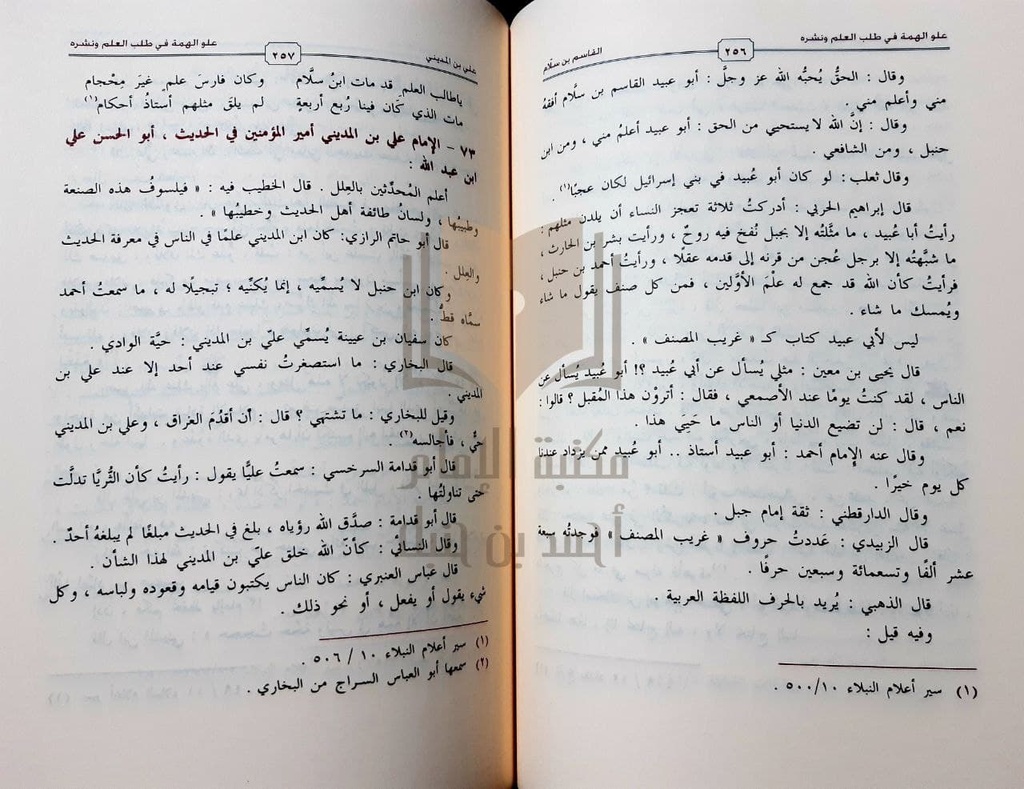 علو الهمة في طلب العلم ونشره
٢٥٦
القاسم بن سلام
وقال : الحقُّ يُحبُّه الله عز وجلَّ : أبو عبيد القاسم بن سلَّام أفقهُ
مني وأعلم مني .
وقال : إنَّ الله لا يستحيي من الحق : أبو عبيد أعلمُ مني ، ومن ابن
حنبل ، ومن الشافعي .
وقال ثعلب : لو كان أبو عُبيد في بني إسرائيل لكان عجبًا(١) .
قال إبراهيم الحربي : أدركتُ ثلاثة تعجز النساء أن يلدن مثلهم :
رأيتُ أبا عُبيد ، ما مثَّلته إلا بجبل نُفخ فيه روحٌ ، ورأيت بشر بن الحارث ،
ما شبَّهتُه إلا برجل عُجن من قرنه إلى قدمه عقلًا ، ورأيتُ أحمد بن حنبل ،
فرأيتُ كأن الله قد جمع له علْمَ الأوَّلين ، فمن كل صنف يقول ما شاء
ويُمسك ما شاء .
ليس لأبي عبيد كتاب كـ « غريب المصنف » .
قال يحيى بن معين : مثلي يُسأل عن أبي عُبيد ؟! أبو عُبيد يُسأل عن
الناس ، لقد كنتُ يومًا عند الأصمعي ، فقال : أتروْن هذا المُقبل ؟ قالوا :
نعم ، قال : لن تضيع الدنيا أو الناس ما حَيِي هذا .
وقال عنه الإمام أحمد : أبو عبيد أستاذ .. أبو عُبيد ممن يزداد عندنا
كل يوم خيرًا .
وقال الدارقطني : ثقة إمام جبل .
قال الزبيدي : عَددتُ حروف « غريب المصنف » فوجدتُه سبعة
عشر ألفًا وتسعمائة وسبعين حرفًا .
قال الذهبي : يُريد بالحرف اللفظة العربية .
وفيه قيل :
(١) سير أعلام النبلاء ٥٠٠/١٠ .
علو الهمة في طلب العلم ونشره
٢٥٧
علي بن المديني
ياطالب العلم قد مات ابنُ سلَّام وكان فارسَ علمٍ غيَر مِحْجام
مات الذي كان فينا رُبع أربعةٍ لم يلق مثلهم أستاذُ أحكام(١)
٧٣ - الإمام علي بن المديني أمير المؤمنين في الحديث ، أبو الحسن علي
ابن عبد الله :
أعلم المُحدِّثين بالعِلل . قال الخطيب فيه : « فيلسوفُ هذه الصنعة
وطبيبُها ، ولسانُ طائفة أهل الحديث وخطيبُها » .
قال أبو حاتم الرازي: كان ابن المديني علمًا في الناس في معرفة الحديث
والعِلل .
وكان ابن حنبل لا يُسمِّيه ، إنَّما يُكنِّيه ؛ تبجيلًا له ، ما سمعتُ أحمد
سمَّاه قطُّ .
كان سفيان بن عيينة يُسمِّي عليَّ بن المديني : حيَّة الوادي .
قال البخاري : ما استصغرتُ نفسي عند أحد إلا عند علي بن
المديني .
وقيل للبخاري : ما تشتهي ؟ قال : أن أقدُمَ العراق ، وعلي بن المديني
حيٌّ ، فأجالسه(٢)
قال أبو قدامة السرخسي : سمعتُ عليًّا يقول : رأيتُ كأن الثُّريَّا تدلَّت
حتى تناولتُها .
قال أبو قدامة : صدَّق الله رؤياه ، بلغ في الحديث مبلغًا لم يبلغهُ أحدٌ .
وقال النسائيُّ : كأنَّ الله خلق عليَّ بن المديني لهذا الشأن .
قال عباس العنبري : كان الناس يكتبون قيامه وقعوده ولباسه ، وكل
شيء يقول أو يفعل ، أو نحو ذلك .
(١) سير أعلام النبلاء ١٠ / ٥٠٦ .
(٢) سمعها أبو العباس السراج من البخاري .
مكتبة الإمام
أحمد بن حنبل